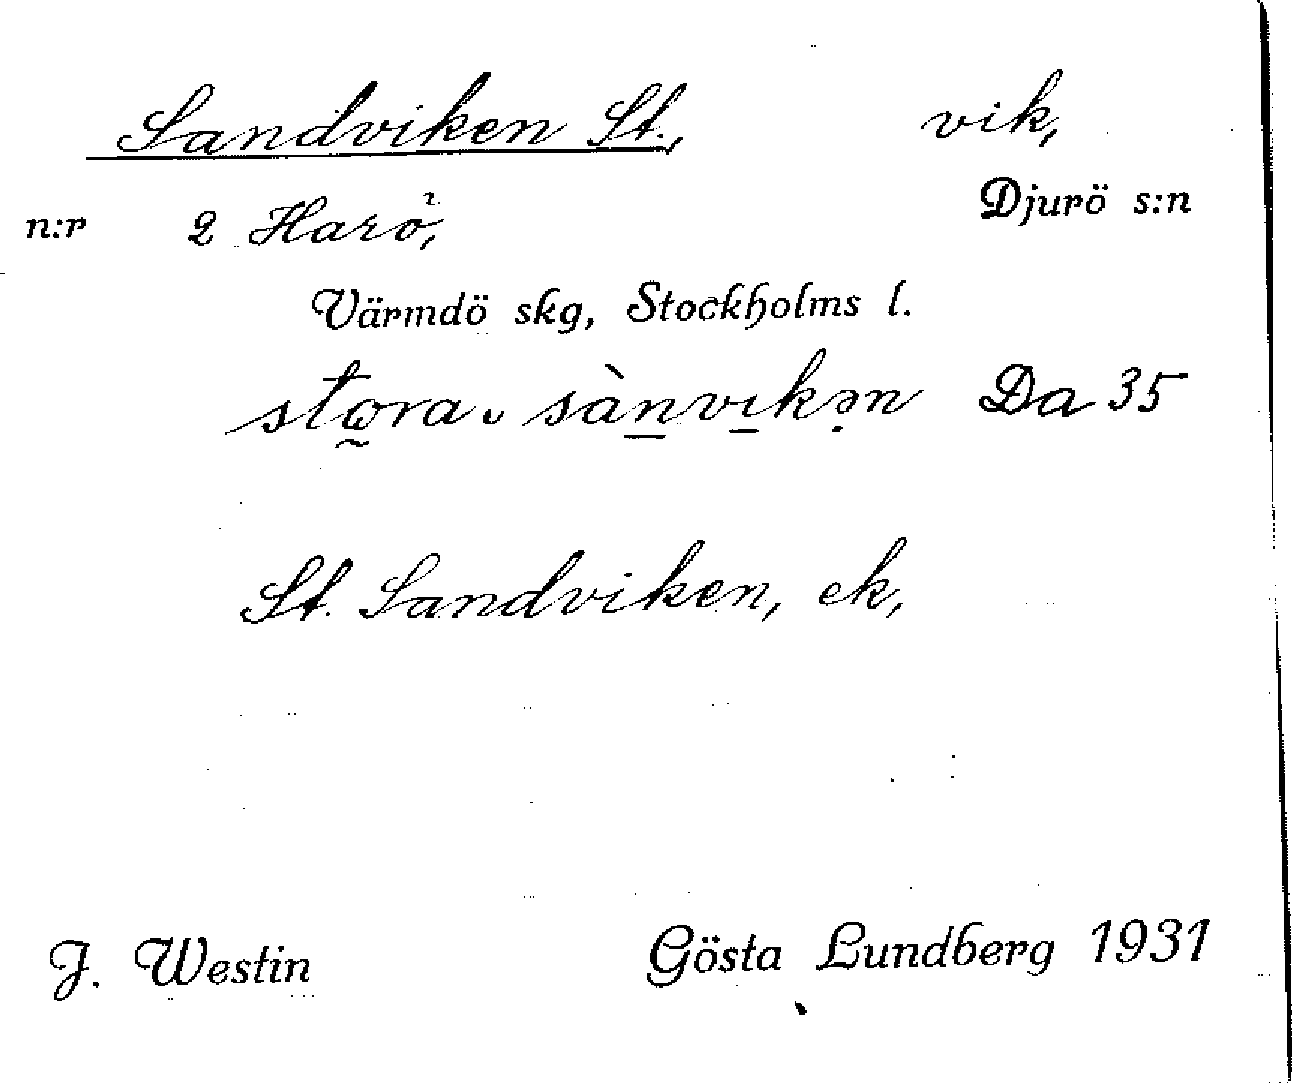 Sandviken St., vik,
n:r 2 Harö, Djurö s:n
Värmdö skg, Stockholms l.
stọra ᵕ sànvıkən Da 35
St. Sandviken, ek,
J. Westin Gösta Lundberg 1931